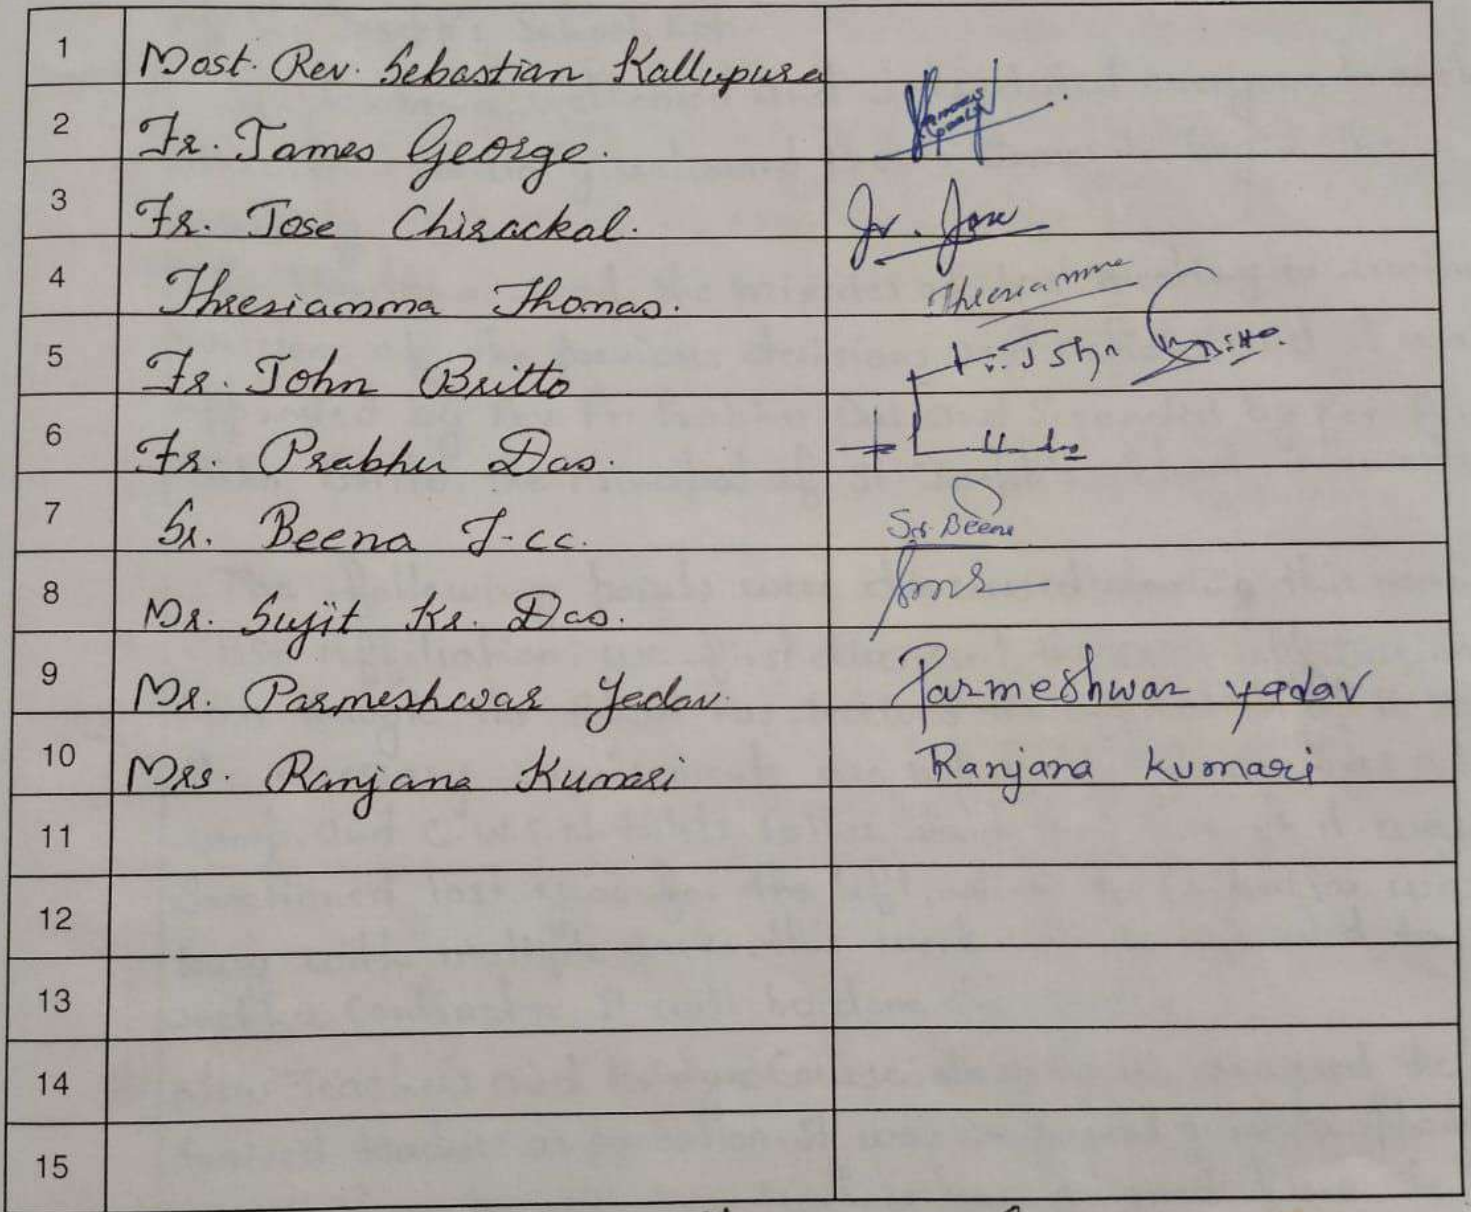 1 Most. Rev. Sebastian Kallupura
2 Fr. James George.
3 Fr. Jose Chirackal. Fr. Jose
4 Thresiamma Thomas. Thresiamma
5 Fr. John Britto Fr. John Britto
6 Fr. Prabhu Das.
7 Sr. Beena J-cc. Sr. Beena
8 Mr. Sujit Kr. Das.
9 Mr. Parmeshwar Yadav. Parmeshwar yadav
10 Mrs. Ranjana Kumari Ranjana kumari
11
12
13
14
15